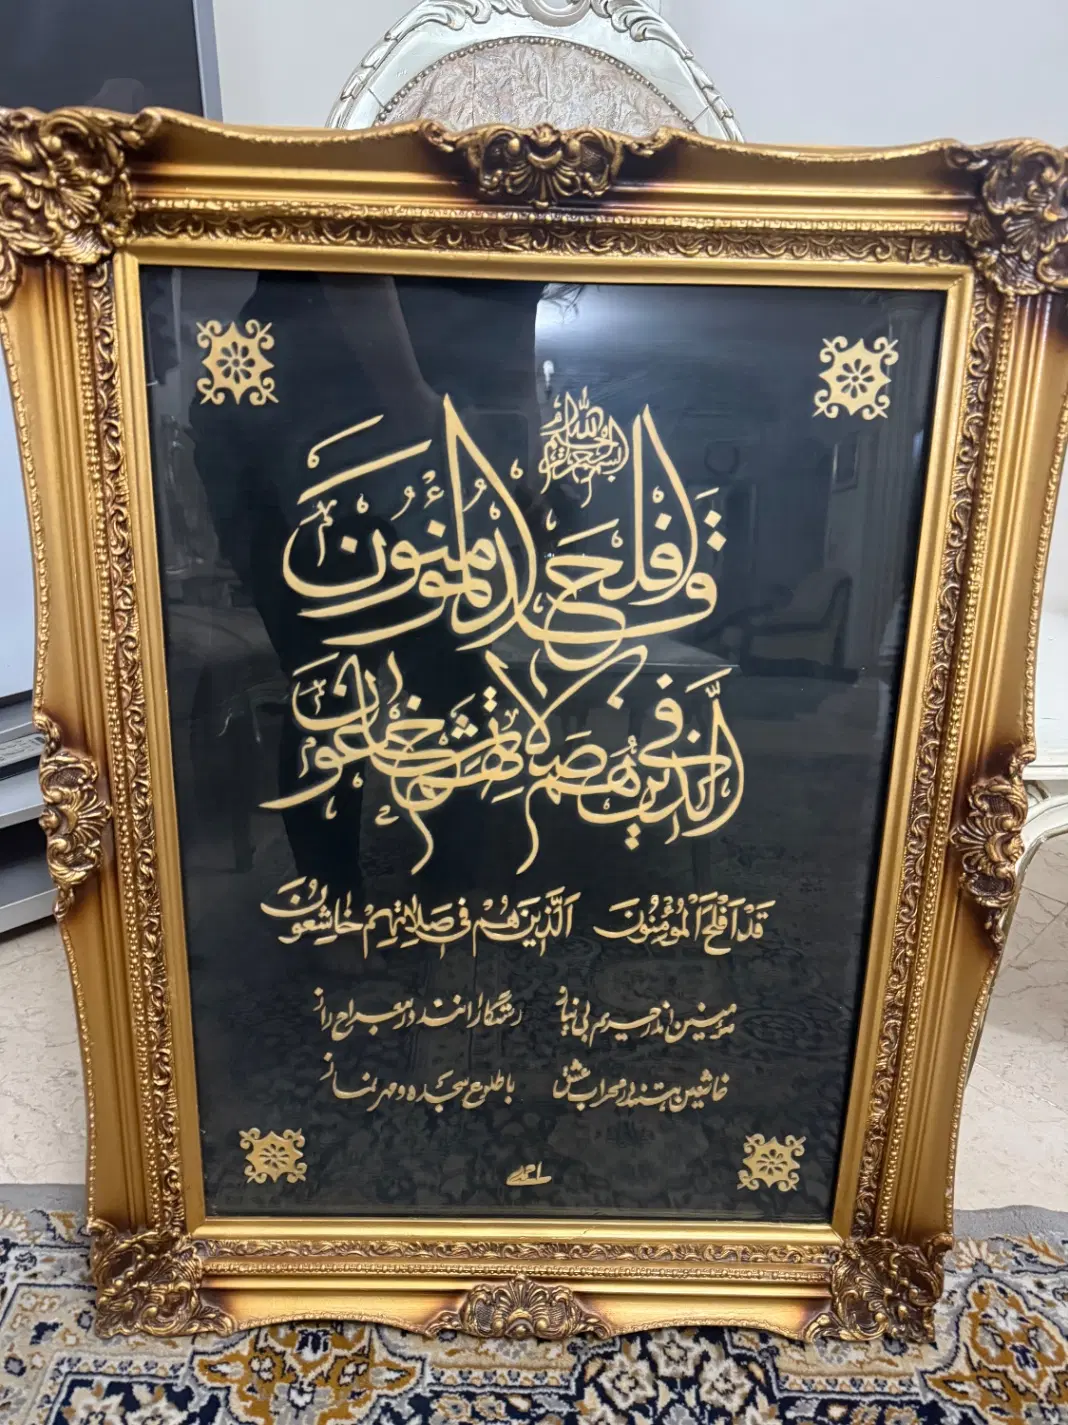 بسم الله الرحمن الرحیم
قد افلح المؤمنون
الذین هم فی صلاتهم خاشعون
قَدْ اَفْلَحَ الْمُؤْمِنُونَ اَلَّذینَ هُمْ فی صَلاتِهِمْ خاشِعُونَ
مؤمنین اندر حریم بی نیاز رستگارانند در معراج راز
خاشعین هستند در محراب عشق با طلوع سجده و مهر نماز